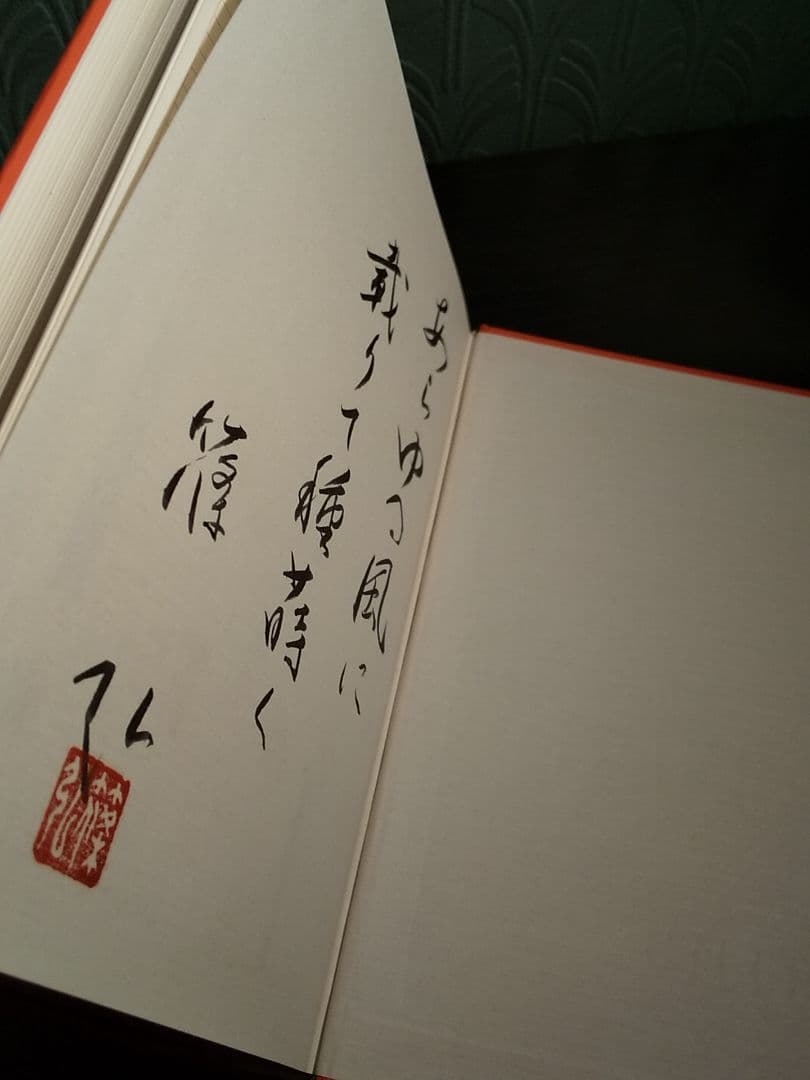 あらゆる風に
載りて種蒔く
篠 弘
篠弘